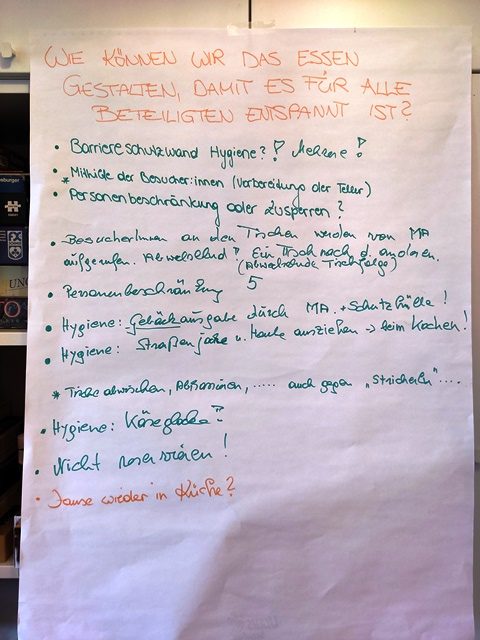 WIE KÖNNEN WIR DAS ESSEN
GESTALTEN, DAMIT ES FÜR ALLE
BETEILIGTEN ENTSPANNT IST?
• Barriereschutzwand Hygiene? ! Mehrere !
• * Mithilfe der Besucher:innen (Vorbereitung der Teller)
• Personenbeschränkung oder Zusperren?
• BesucherInnen an den Tischen werden von MA
aufgerufen. Abwechselnd? Ein Tisch nach d. anderen.
(Abwechselnde Tischfolge)
• Personenbeschränkung 5
• Hygiene: Gebäckausgabe durch MA. + Schutzhülle!
• Hygiene: Straßenjacke u. Haube ausziehen → beim Kochen!
* Tische abwischen, Abservieren, ..... auch gegen "Stricherln" ....
• Hygiene: Käseglocke?
• Nicht reservieren!
• Jause wieder in Küche?